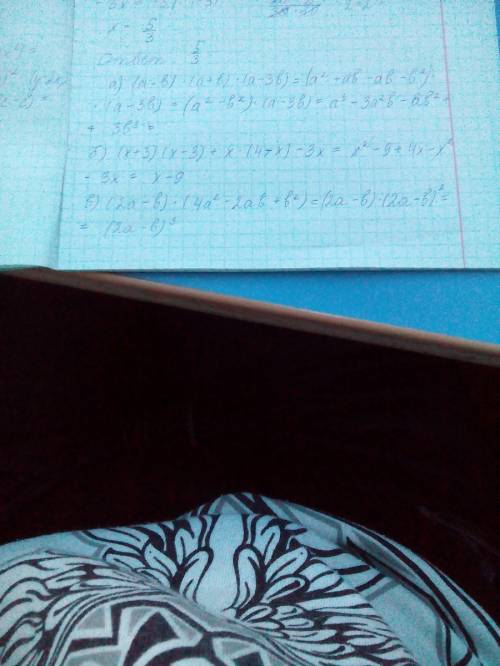 x = 5/3
Ответ: 5/3
а) (a-b)·(a+b)·(a-3b)=(a²+ab-ab-b²)·
·(a-3b)=(a²-b²)·(a-3b)=a³-3a²b-ab²+
+3b³
б) (x+3)(x-3)+x·(4-x)-3x = x²-9+4x-x²
-3x = x-9
в) (2a-b)·(4a²-2ab+b²)=(2a-b)·(2a-b)²=
= (2a-b)³